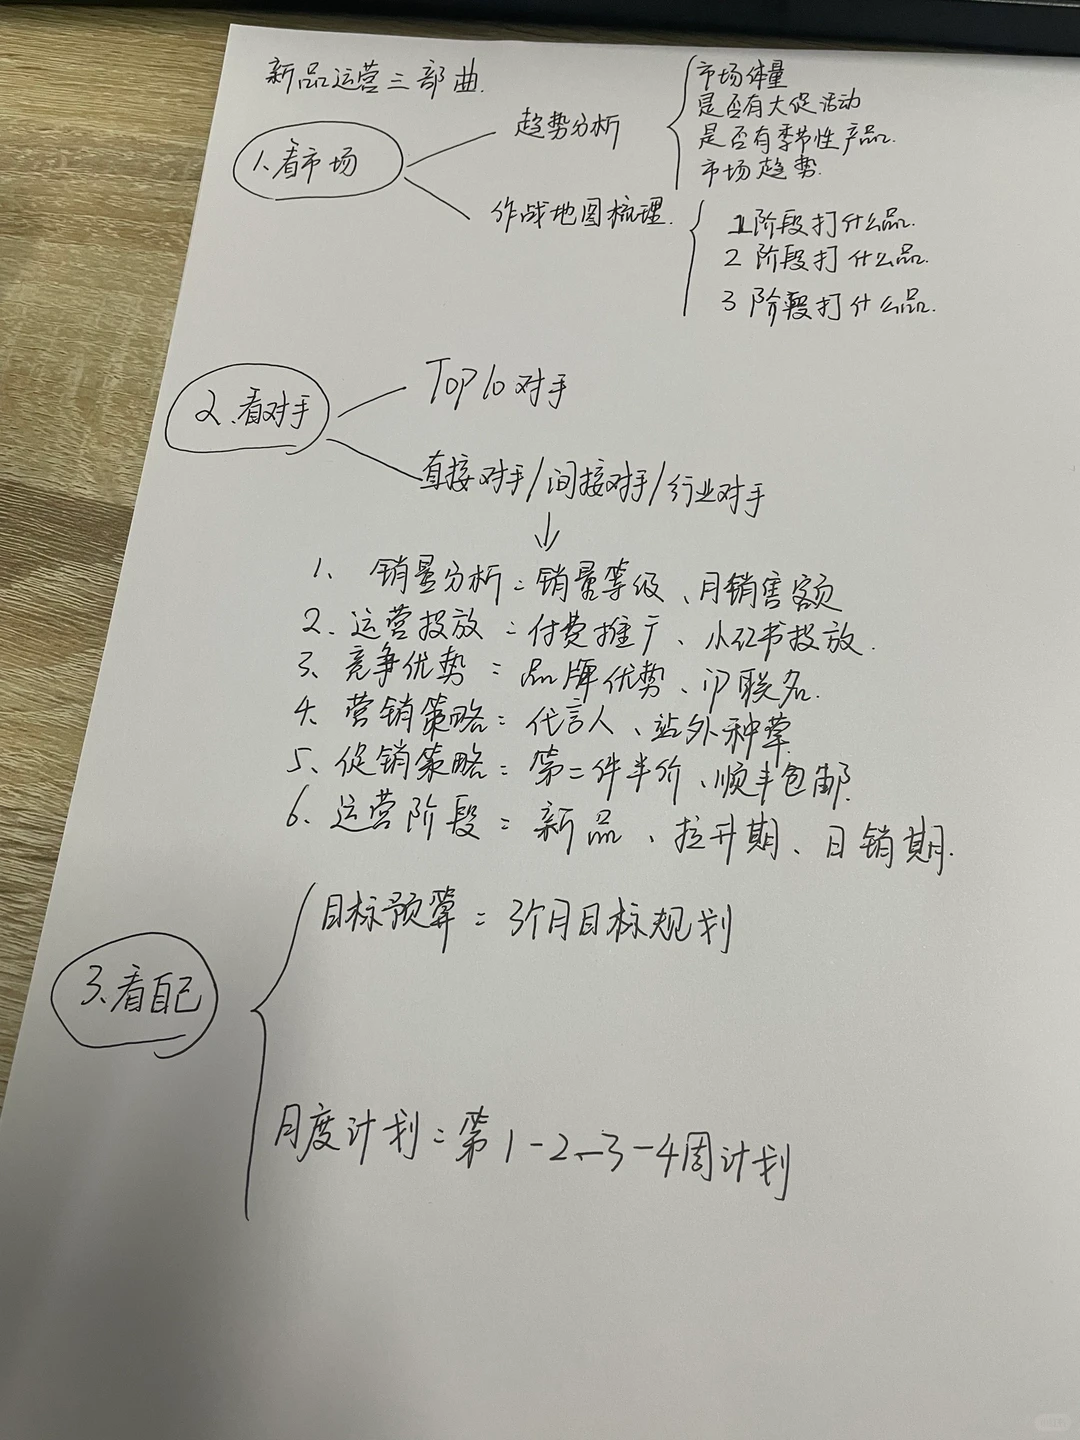 新品运营三部曲.
1.看市场
趋势分析
市场体量
是否有大促活动
是否有季节性产品.
市场趋势.
作战地图梳理.
1阶段打什么品.
2 阶段打什么品.
3 阶段打什么品.
2.看对手
Top10对手
直接对手/间接对手/行业对手
↓
1、销量分析:销量等级、月销售额
2、运营投放:付费推广、小红书投放.
3、竞争优势:品牌优势、IP联名.
4、营销策略:代言人、站外种草
5、促销策略:第二件半价、顺丰包邮.
6、运营阶段:新品、拉升期、日销期.
3、看自己
目标预算:3个月目标规划
月度计划:第1-2、3-4周计划